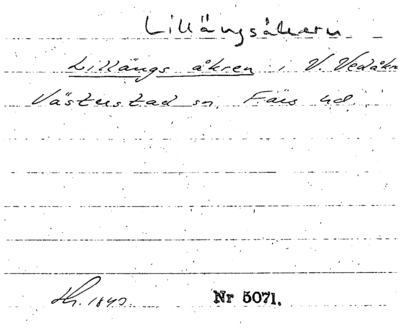 Lillängsåkern
Lillängs åkren i V. Vedåkr
Västerstad sn. Färs hd.
Nr 5071.